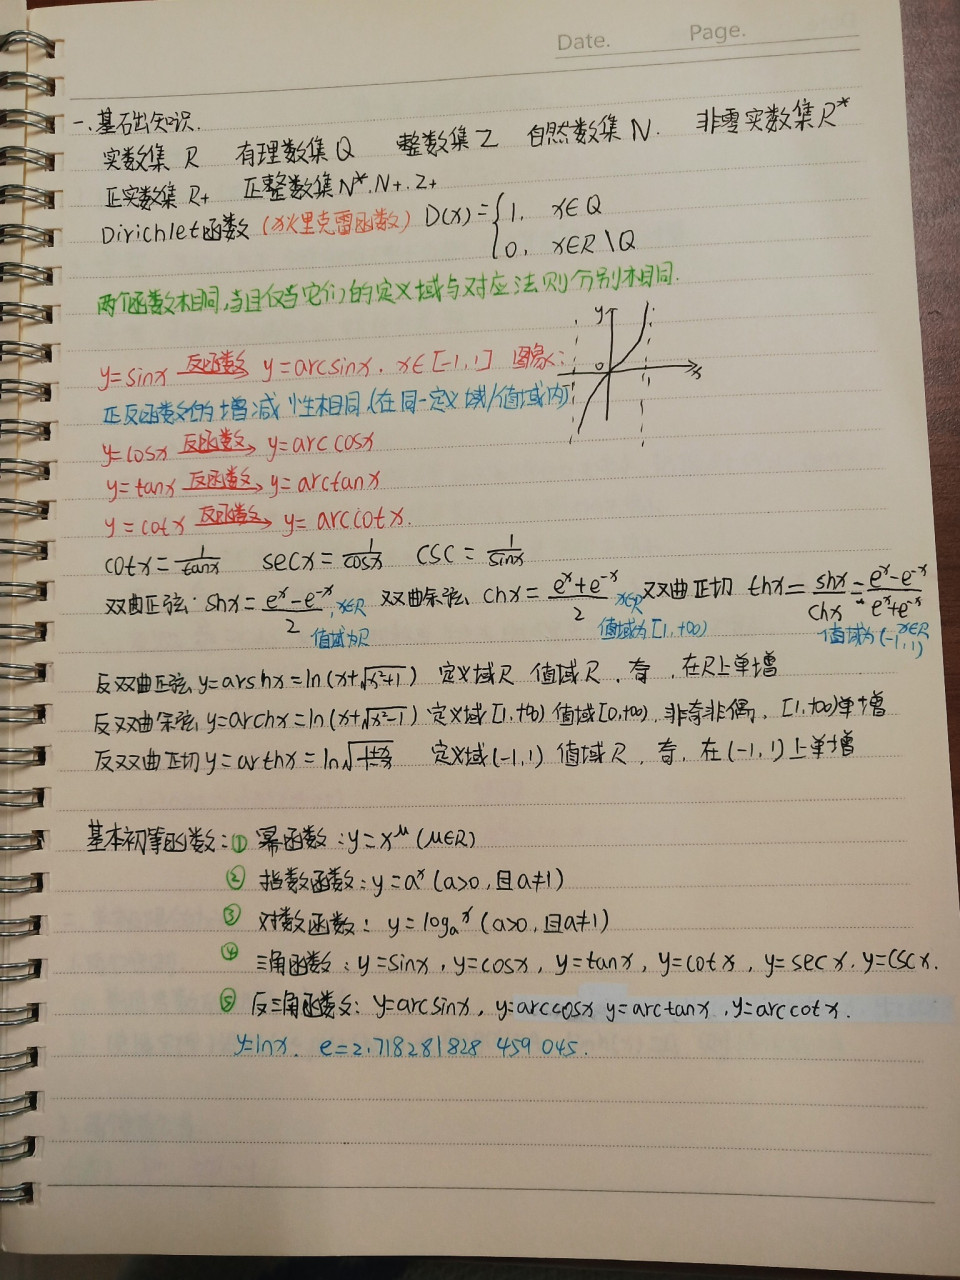 Date. Page.
一.基础知识.
实数集 R 有理数集 Q 整数集 Z 自然数集 N. 非零实数集 R*
正实数集 R+ 正整数集 N*.N+.Z+
Dirichlet函数 (狄里克雷函数) D(x)={1, x∈Q
0, x∈R\Q
两个函数相同,当且仅当它们的定义域与对应法则分别相同.
y=sinx 反函数 y=arcsinx, x∈[-1,1] 图象:
y
o
x
正反函数的增减性相同(在同一定义域/值域内)
y=cosx 反函数→ y=arccosx
y=tanx 反函数→ y=arctanx
y=cotx 反函数→ y=arccotx.
cotx=1/tanx secx=1/cosx csc=1/sinx
双曲正弦: shx=(e^x-e^-x)/2, x∈R 双曲余弦 chx=(e^x+e^-x)/2 x∈R 双曲正切 thx=shx/chx=(e^x-e^-x)/(e^x+e^-x) x∈R
值域为R 值域为[1,+∞) 值域为(-1,1)
反双曲正弦 y=arshx=ln(x+√(x²+1)) 定义域R 值域R, 奇, 在R上单增
反双曲余弦 y=archx=ln(x+√(x²-1)) 定义域[1,+∞) 值域[0,+∞), 非奇非偶, [1,+∞)单增
反双曲正切 y=arthx=ln√((1+x)/(1-x)) 定义域(-1,1) 值域R, 奇, 在(-1,1)上单增
基本初等函数:① 幂函数:y=x^μ(μ∈R)
② 指数函数:y=a^x(a>0,且a≠1)
③ 对数函数: y=log_a^x(a>0,且a≠1)
④ 三角函数:y=sinx,y=cosx, y=tanx, y=cotx, y=secx. y=cscx.
⑤ 反三角函数: y=arcsinx, y=arccosx y=arctanx, y=arccotx.
y=lnx. e=2.718281828 459 045.